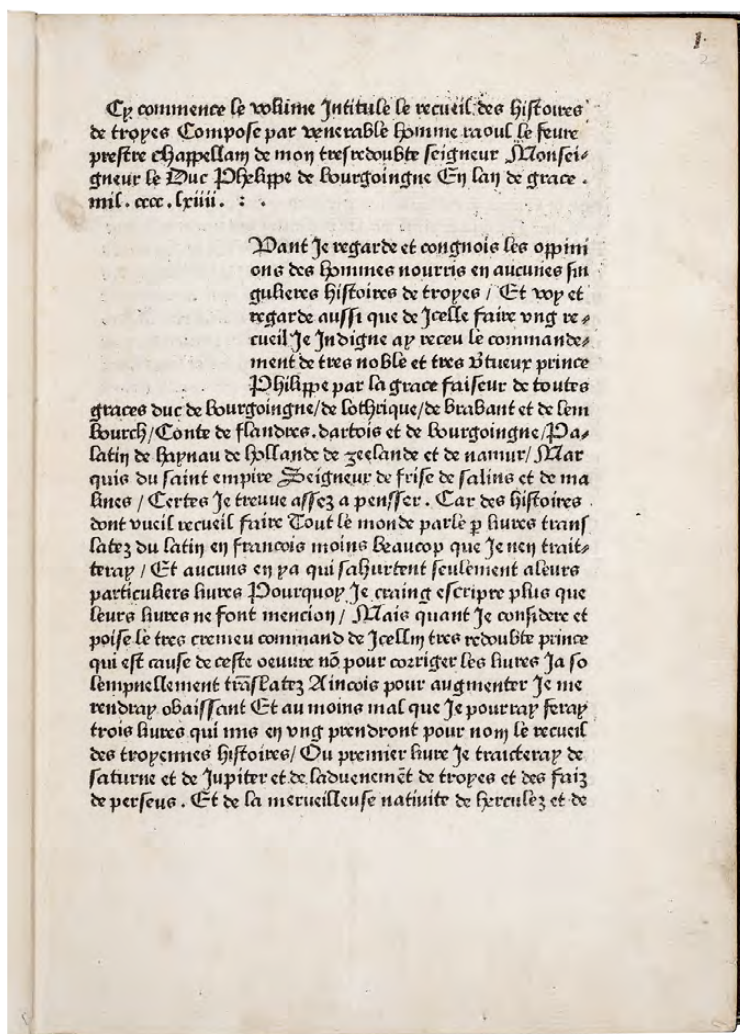 1.
2
Cy commence le volume Intitule le recueil des histoires
de troyes Compose par venerable homme raoul le feure
prestre chappellain de mon tresredoubte seigneur Monsei-
gneur le Duc Phelippe de bourgoingne En lan de grace .
mil . cccc . lxiiii . : .
Vant Je regarde et congnois les oppini
ons des hommes nourris en aucunes sin
gulieres histoires de troyes / Et voy et
regarde aussi que de Icelle faire vng re-
cueil Je Indigne ay receu le commande-
ment de tres noble et tres vtueux prince
Philippe par la grace faiseur de toutes
graces duc de bourgoingne/de lothrique/de brabant et de lem
bourch/Conte de flandres.dartois et de bourgoingne/Pa-
latin de haynau de hollande de zeelande et de namur/Mar
quis du saint empire Seigneur de frise de salins et de ma
lines / Certes Je treuue assez a pensser . Car des histoires .
dont vueil recueil faire Tout le monde parle ꝑ liures trans
latez du latin en francois moins beaucop que Je nen trait-
teray / Et aucuns en ya qui sahurtent seulement aleurs
particuliers liures Pourquoy Je craing escripre plus que
leurs liures ne font mencion / Mais quant Je considere et
poise le tres cremeu command de Icellui tres redoubte prince
qui est cause de ceste oeuure nõ pour corriger les liures Ja so
lempnellement trãslatez Aincois pour augmenter Je me
rendray obaissant Et au moins mal que Je pourray feray
trois liures qui mis en vng prendront pour nom le recueil
des troyennes histoires/ Ou premier liure Je traicteray de
saturne et de Jupiter et de laduenemẽt de troyes et des faiz
de perseus . Et de la merueilleuse natiuite de herculez et de